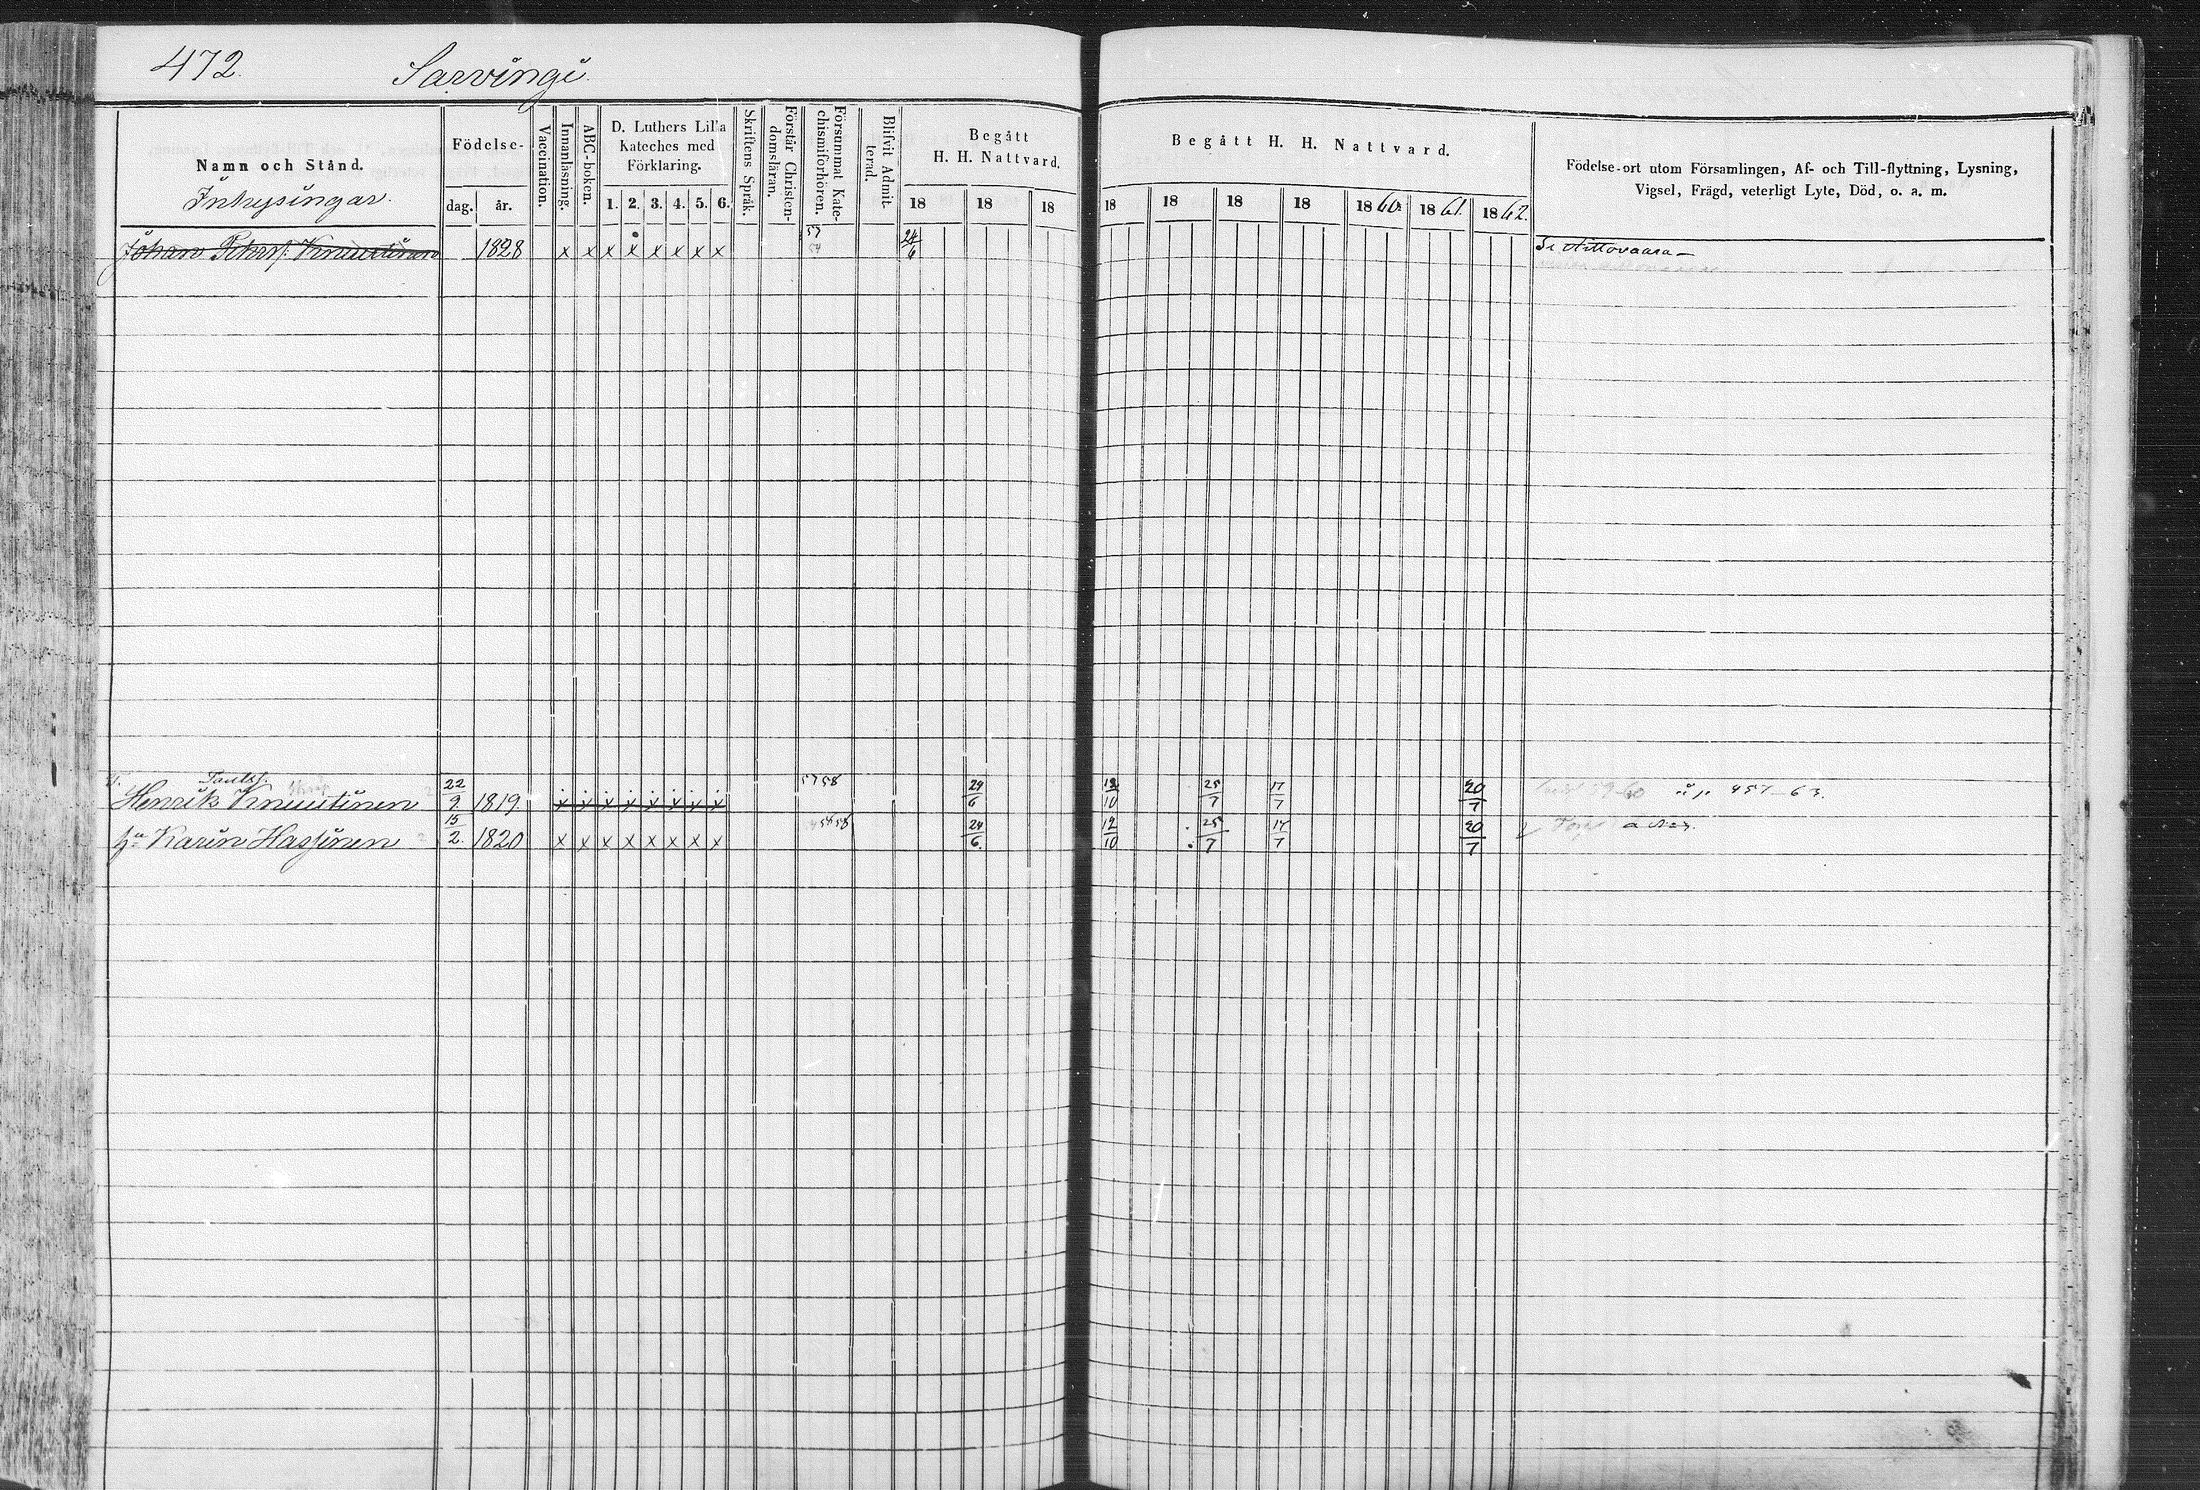 472. Sarvingi.
Namn och Stånd.
Inhysingar.
Födelse-
dag. år.
Vaccination.
Innanläsning.
ABC-boken.
D. Luthers Lilla
Kateches med
Förklaring.
1. 2. 3. 4. 5. 6.
Skriftens Språk.
Förstår Christen-
domsläran.
Försummat Kate-
chismiförhören.
Blifvit Admit-
terad.
Begått
H. H. Nattvard.
18 18 18
Begått H. H. Nattvard.
18 18 18 18 1860. 1861. 1862.
Födelse-ort utom Församlingen, Af- och Till-flyttning, Lysning,
Vigsel, Frägd, veterligt Lyte, Död, o. a. m.
Johan Knuutinen 1828 x x x x x x x x 57 24/6 Aittovaara
Henrik Knuutinen 22/9 1819 24/6 12/10 25/7 17/7 20/7 63.
hu Karin Hassinen 15/2 1820 x x x x x x x x 24/6 12/10 25/7 17/7 20/7